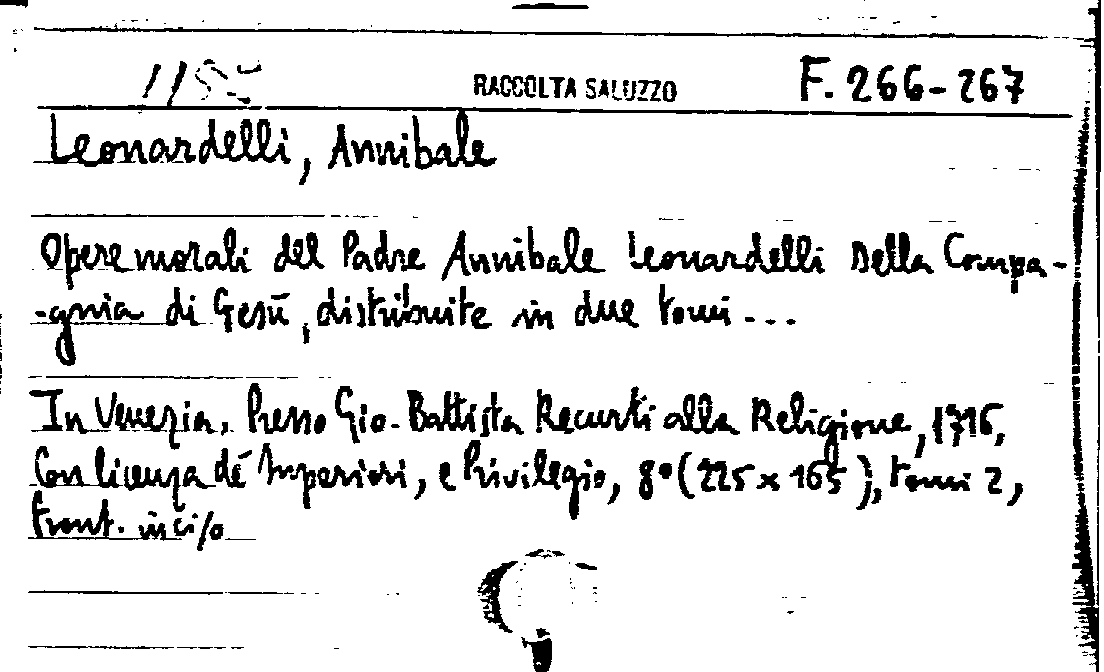 RACCOLTA SALUZZO F. 266-267
Leonardelli, Annibale
Opere morali del Padre Annibale Leonardelli della Compa-
-gnia di Gesù, distribuite in due tomi...
In Venezia. Presso Gio. Battista Recurti alla Religione, 1716,
Con licenza de' Superiori, e Privilegio, 8° (225 x 165), tomi 2,
front. inciso